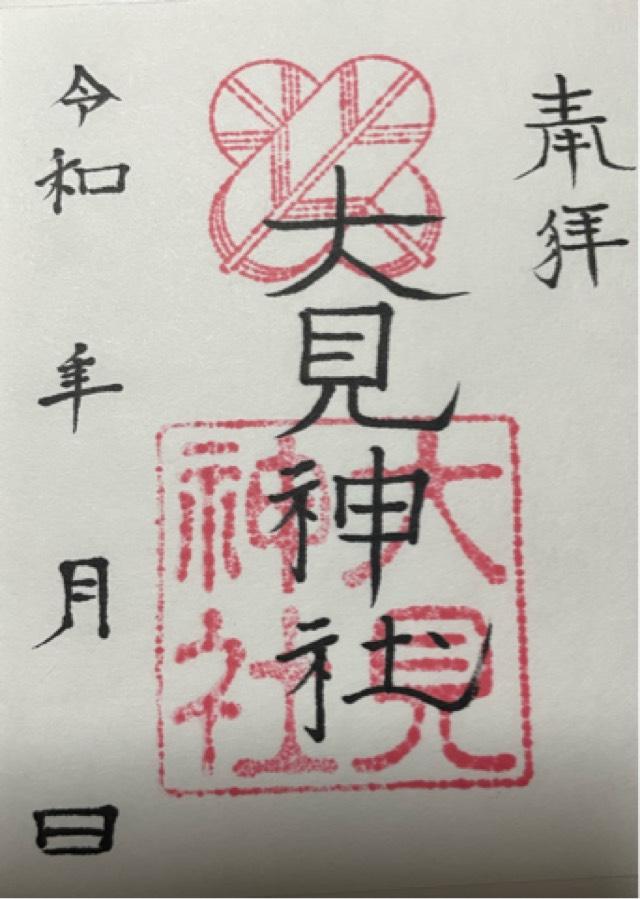 奉拝
大見神社
大見
神社
令和 年 月 日